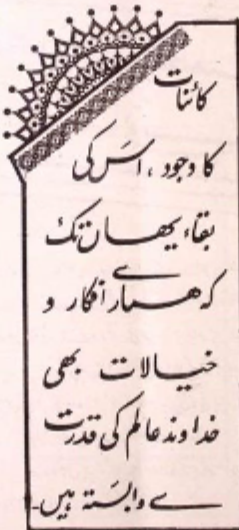 کائنات
کا وجود ، اس کی
بقاء یہاں تک
کہ ہمارے افکار و
خیالات بھی
خداوند عالم کی قدرت
سے وابستہ ہیں۔